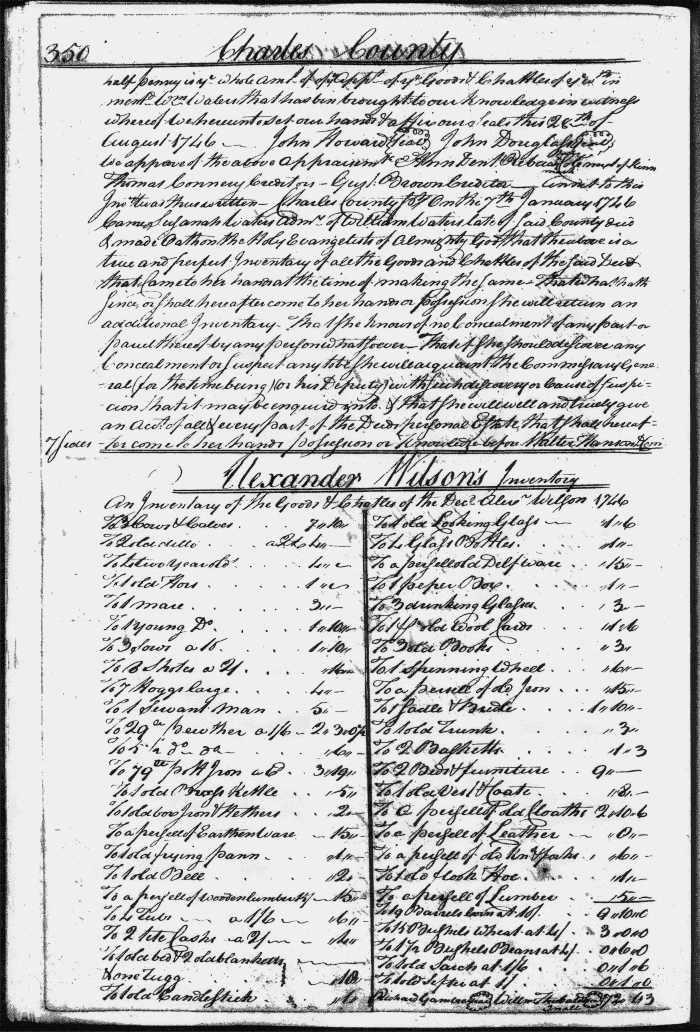 350 Charles County
half penny is ye whole amt. of ye Appt. of ye Goods & Chattles of ye in
ment. Wm. Waters that has bin brought to our knowledge in witness
whereof we hereunto set our hands & affix our Seals this 28th of
August 1746 — John Howard Seal John Douglass Seal
we approve of the above Appraismt. Ann Dent Rebecca next of kinn
Thomas Connery Creditors — Gust. Brown Creditor — Annext to this
Invt. was thus written — Charles County Sst. On the 7th January 1746
Came Susanah Waters Admx. of William Waters late of said County decd
& made Oath on the Holy Evangelists of Almighty God that the above is a
true and perfect Inventory of all the Goods and Chattles of the said Decd
that Came to her hands at the time of making the Same — That what hath
Since, or shall hereafter come to her hands or possession she will return an
additional Inventory. That she knows of no Concealment of any part or
parcel thereof by any person whatsoever — That if she should discover any
Concealment or suspect any to be she will acquaint the Commissary Gene
ral (for the time being) or his Deputy) with such discovery or Cause of Suspi-
cion that it may be enquired into & that she will well and truely give
an Acct. of all & every part of the Decds personal Estate that shall hereaf-
7 sides — ter come to her hands possession or knowledge before Walter Hanson Com
Alexander Wilson's Inventory
An Inventory of the Goods & Chatles of the Decd. Alexr. Willson 1746
To 3 Cows & Calves . . . 7 " 10 "
To 2 Ditto
To two year old
To 1 old Hors
To 1 mare . . . 3 " —
To 1 young Do. . . . 1 " 10 "
To 3 Sows a 10 . . . 1 " 10 "
To 8 Shotes a 2/
To 7 Hoggs large . . . 4 " —
To 1 Servant Man . . . 5 " —
To 29 a pewther a 1/6 — 2 " 3 " 6
To 5 lb do. do. — " 6 " —
To 79 lb pott Iron a 6d . 3 " 19 "
To 1 old Brass Kettle . . " 5 "
To 1 old box Iron & Hethers . " 2 "
To a persell of Earthenware . . " 15 " —
To 1 old frying pann . . . " 1 " —
To 1 old Bell . . . " 2 "
To a persell of wooden lumber — " 15 —
To 4 Tubs — a 1/6 — " 6 " —
To 2 tite Casks a 2/ — " 4 " —
To 1 old bed & 2 old blanketts
& one Rugg — " 18 "
To 1 old Candlestick . . . " 1 "
To 1 old Looking Glass — " 1 " 6
To 4 Glass Bottles . " 1 " —
To a persell old Delf ware . . " 15 " —
To 1 peper Box . . . " 1 " —
To 3 drinking Glasses . . " 3 —
To 1 pr. old Wool Cards . . " 1 " 6
To 3 old Books . . . " 3 "
To 1 Spinning Wheel . . " 6 " —
To a persell of old Iron . . . " 15 " —
To 1 Sadle & Bridle . . . 1 " 10 " —
To 1 old Trunk . . . " 3 "
To 2 Basketts . . . " 1 " 3
To 2 Beds & furniture . . 9 " —
To 1 old Vest & Coate . . . " 8 " —
To a persell of old Cloaths 2 " 10 " 6
To a persell of Leather — " 8 " —
To a persell of old . . " 6 " —
To 1 old Hook Hoe . . . " 1 " —
To a persell of Lumber . . 15 " —
To 19 Barrels Corn at 10/ . 9 " 10 " 0
To 15 Bushels Wheat at 4/ . 3 " 00 " 0
To 1 1/2 Bushels Beans at 4/ . 0 " 6 " 0
To 1 old Sarch at 1/6 . . 0 " 1 " 6
To 1 old Sifter at 1/ . . . 0 " 1 " 0
Richard Gambra Seal Willm. Theobald Seal